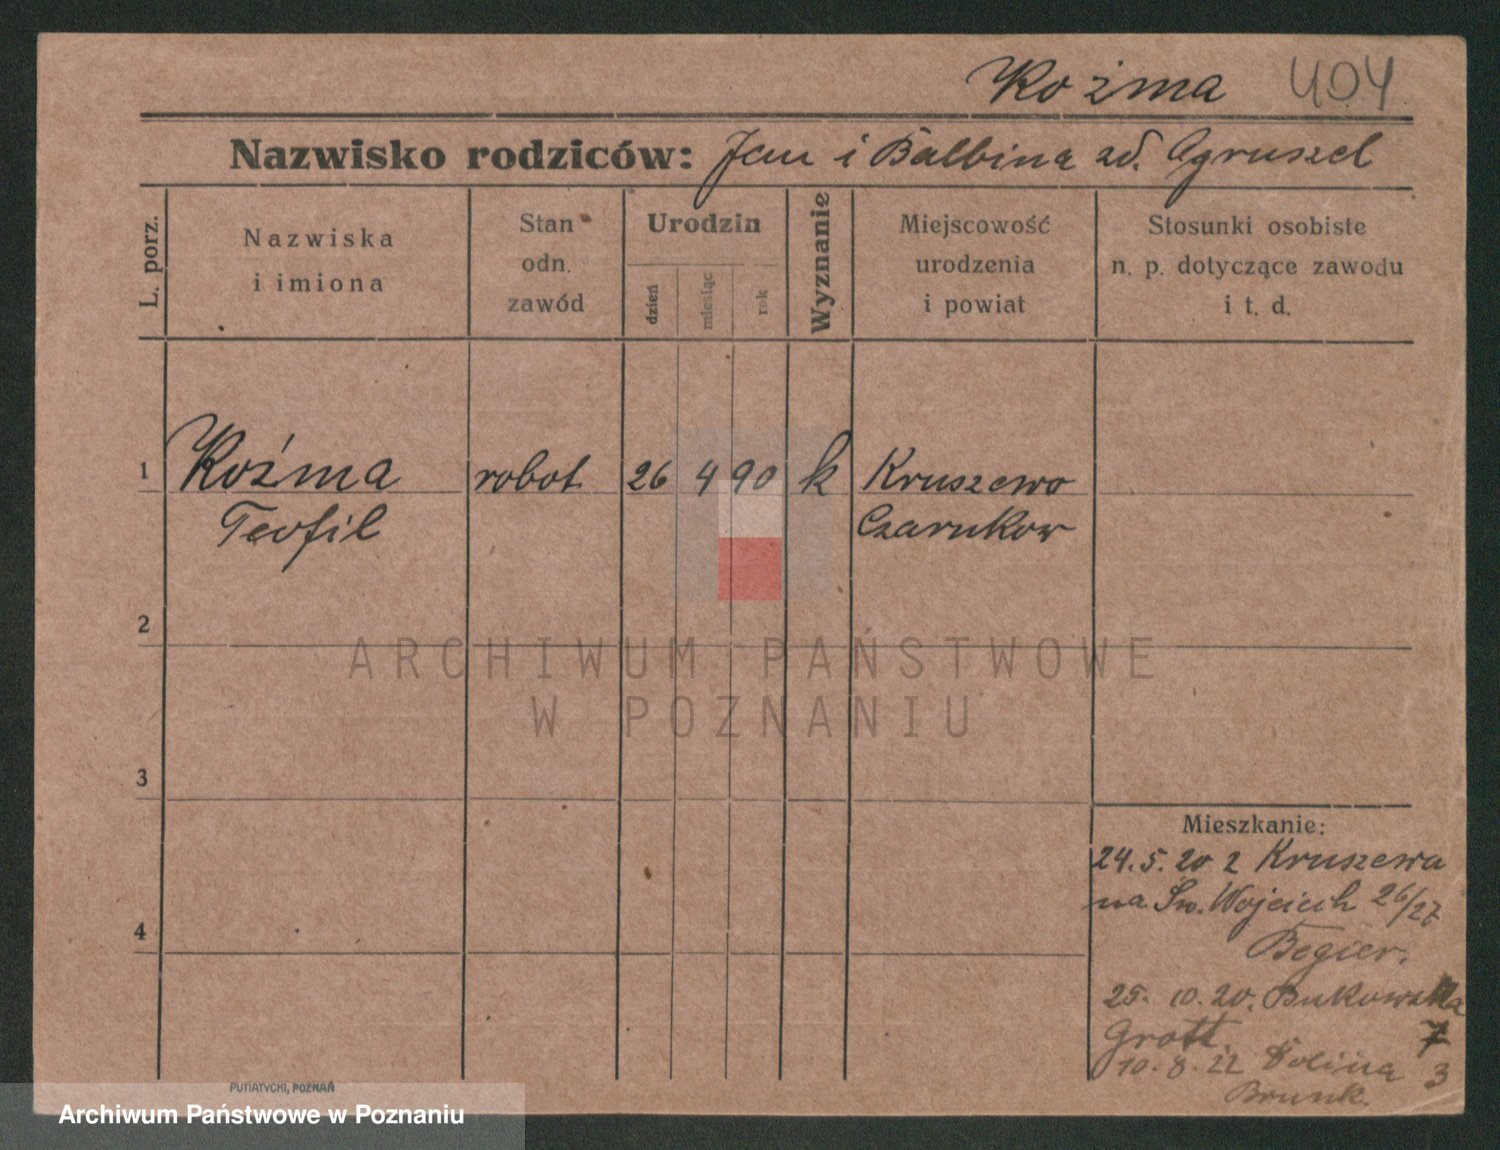 Kożma 404
Nazwisko rodziców: Jan i Balbina zd. Agruszel
L. porz.
Nazwiska
i imiona
Stan
odn.
zawód
Urodzin
dzień
miesiąc
rok
Wyznanie
Miejscowość
urodzenia
i powiat
Stosunki osobiste
n. p. dotyczące zawodu
i t. d.
1 Koźma robot. 26 4 90 k Kruszewo
Teofil Czarnkow
2
3
4
Mieszkanie:
24.5.20 z Kruszewa
na Św. Wojciech 26/27
Begier.
25. 10. 20. Bukowska
Grott. 7
10. 8. 22 Dolina 3
Brunk.
PUTIATYCKI, POZNAŃ
ARCHIWUM PAŃSTWOWE
W POZNANIU
Archiwum Państwowe w Poznaniu